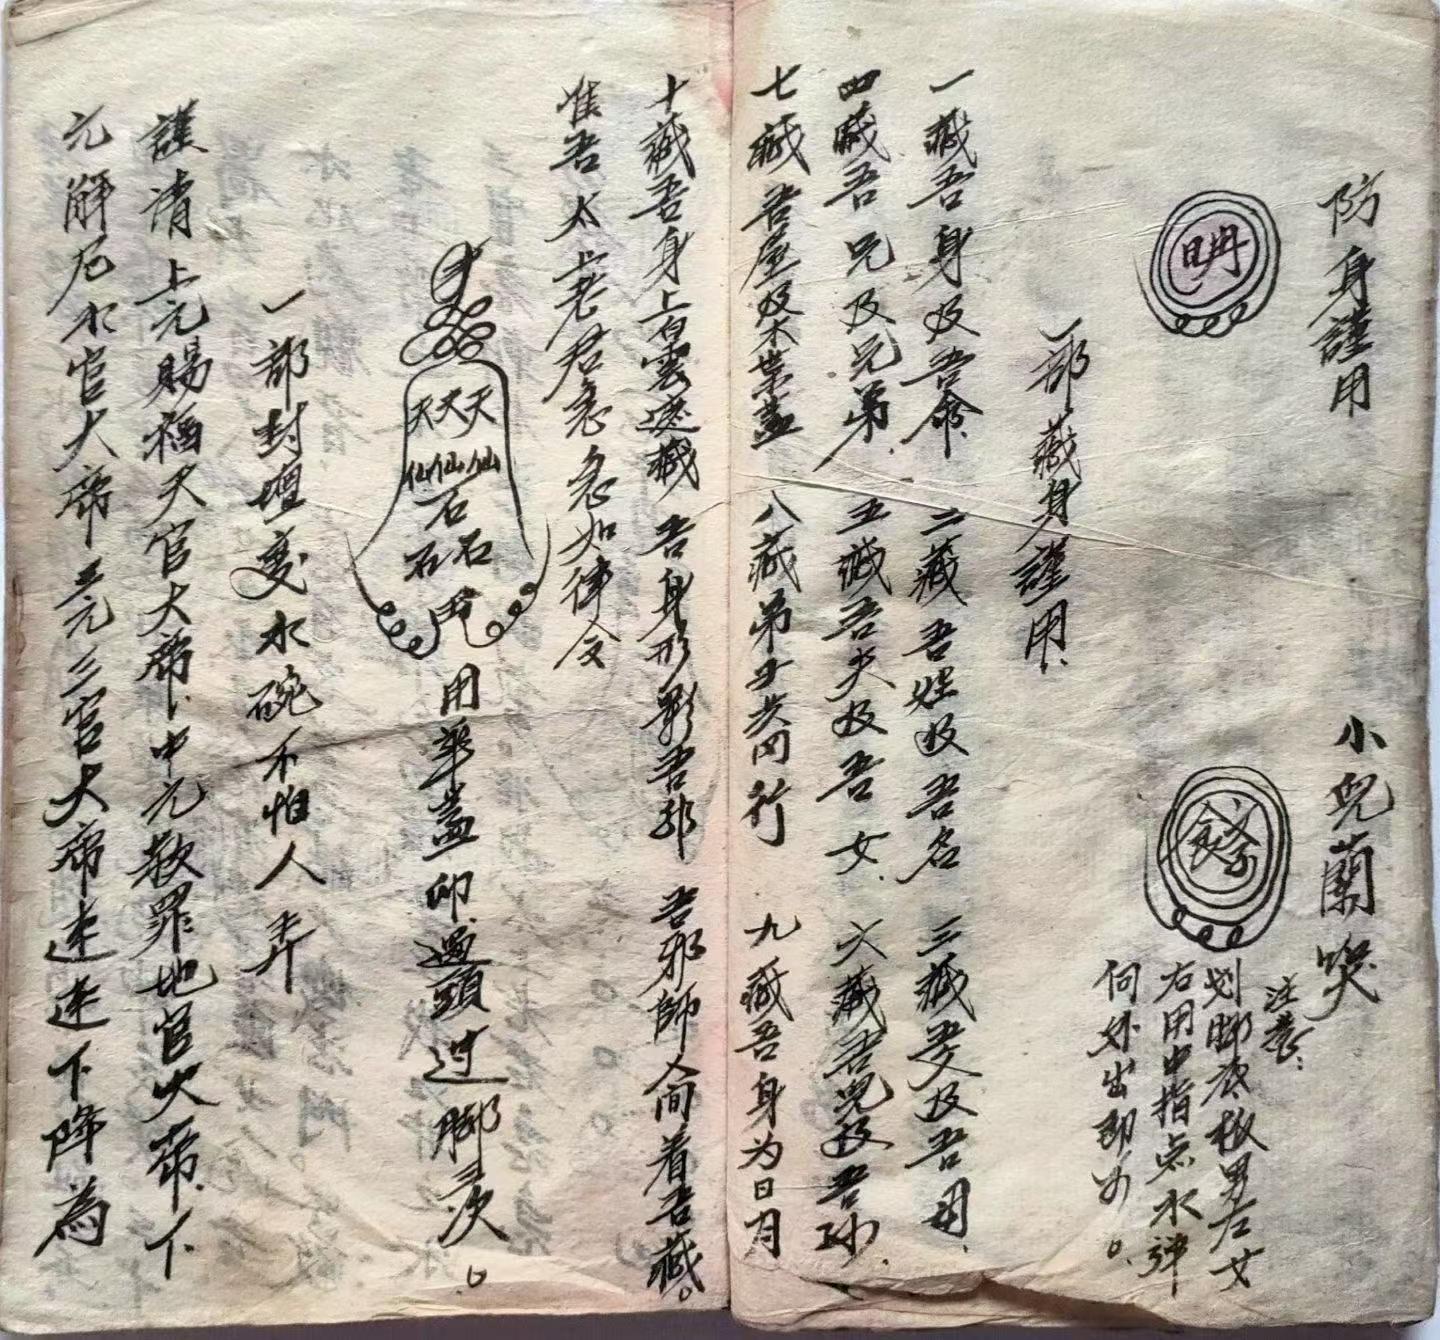 防身謹用
小兒蘭哭
注意：
划脚底板男左女
右用中指点水弹
向外出即好。
一部藏身謹用
一藏吾身及吾命 二藏吾姓及吾名 三藏吾父及吾母
四藏吾兄及兄弟 五藏吾夫及吾女 六藏吾兒及吾孙
七藏吾屋及木葉蓋 八藏弟子共同行 九藏吾身为日月
十藏吾身上白雲遮藏 吾身形影吾 吾邪師人间看吾藏。
准吾太上老君急急如律令
天天天
仙仙仙
石
石石
用平蓋印過頭过脚三次。
一部封壇变水碗不怕人弄
謹請上元賜福天官大帝、中元赦罪地官大帝、下
元解厄水官大帝三元三官大帝速速下降為